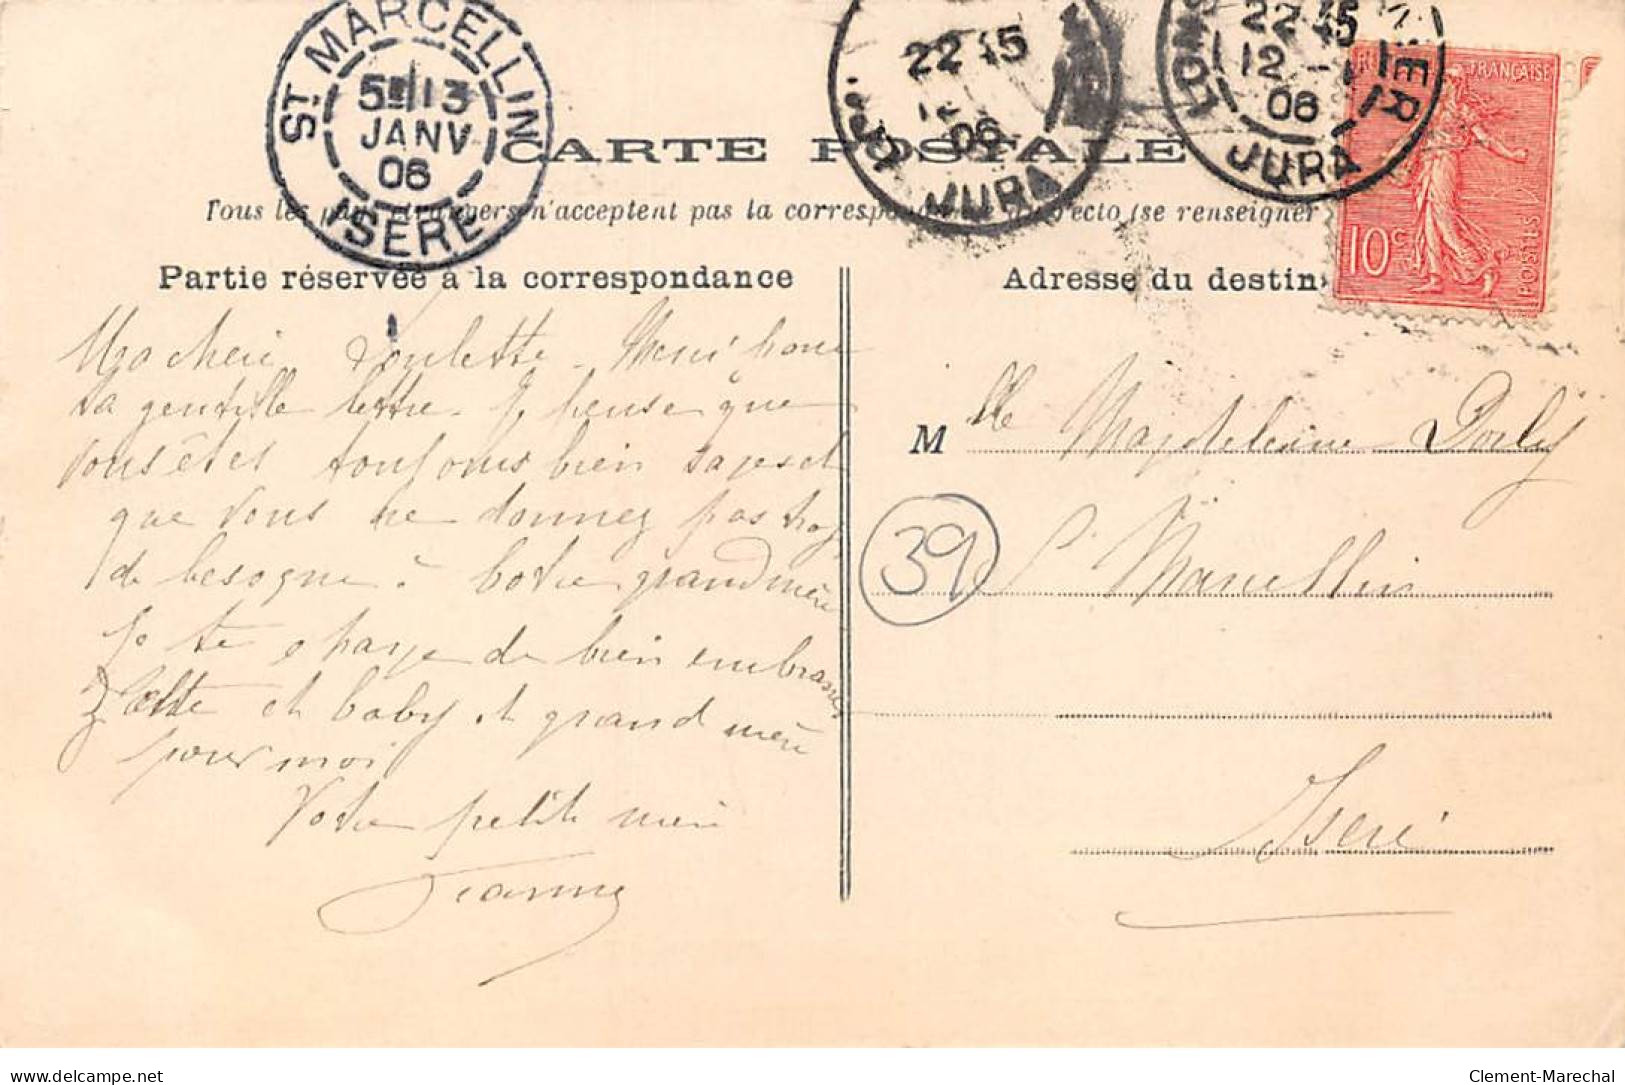 ST MARCELLIN
5E/13
JANV
06
ISERE
22 15
12
06
JURA
22 15
12
06
JURA
FRANÇAISE
10c
POSTES
CARTE POSTALE
Tous les pays étrangers n'acceptent pas la correspondance au recto (se renseigner
Partie réservée à la correspondance
Adresse du destin
Ma cheri Merci pour
ta gentille lettre. Je pense que
vous êtes toujours bien sages et
que vous ne donnez pas trop
de besogne à votre grand mère
Je te charge de bien embrasser
et baby et grand mère
pour moi
Votre petite mère
Jeanne
M lle Magdeleine
39
St Marcellin
Isère
Clement-Marechal
www.delcampe.net